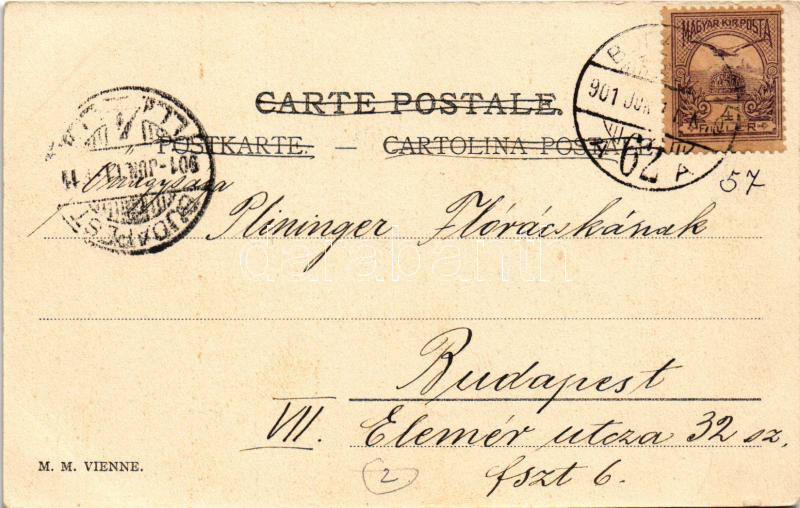 MAGYAR KIR. POSTA
4
FILLÉR
901 JUN
62
A
CARTE POSTALE.
POSTKARTE. — CARTOLINA POSTALE
BUDAPEST
901-JUN. 11
Önagysága
Plininger Flóráčskának
57
darabanth
Budapest
VII. Elemér utcza 32 sz,
fszt 6.
M. M. VIENNE.
2